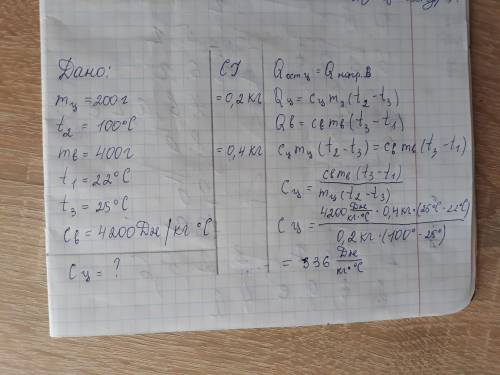 Дано:
mц = 200г
t₂ = 100°C
mв = 400г
t₁ = 22°C
t₃ = 25°C
Cв = 4200 Дж/кг °C
Cц = ?
СИ
= 0,2 кг
= 0,4 кг
Q ост ц = Q нагр. в
Qц = Cц mц (t₂ − t₃)
Qв = Cв mв (t₃ − t₁)
Cц mц (t₂ − t₃) = Cв mв (t₃ − t₁)
Cц = Cв mв (t₃ − t₁) / mц (t₂ − t₃)
Cц = 4200 Дж/кг·°C · 0,4 кг · (25°C − 22°C) / 0,2 кг · (100° − 25°)
= 336 Дж/кг·°C